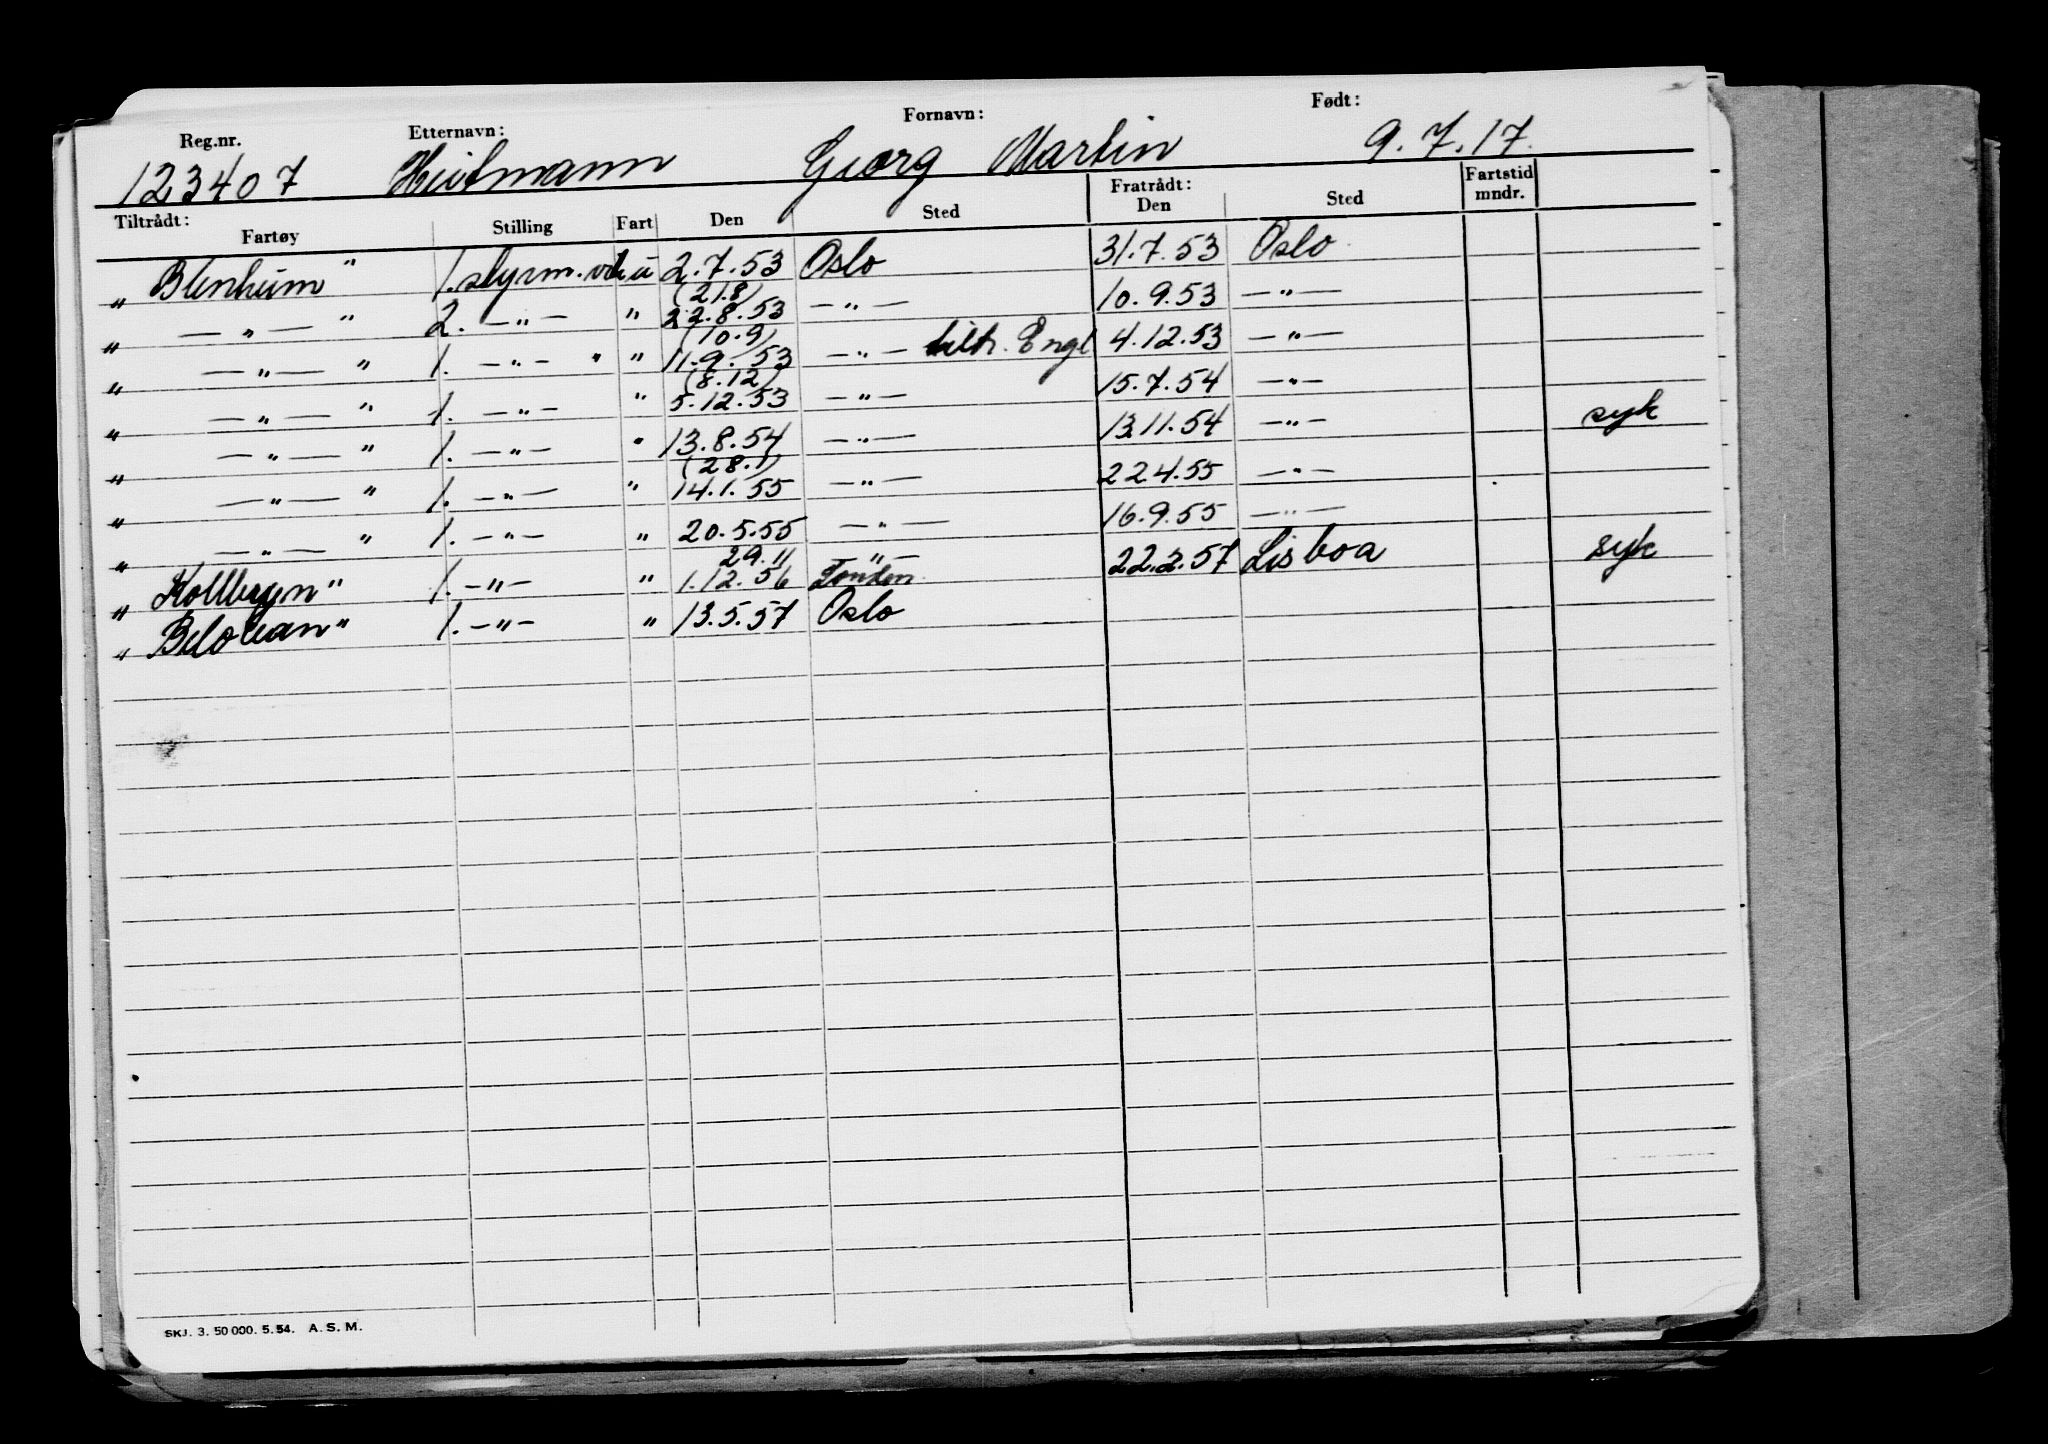 Reg.nr. Etternavn: Fornavn: Født:
123407 Heitmann Georg Martin 9.7.17.
Tiltrådt: Fratrådt: Fartstid mndr.
Fartøy Stilling Fart Den Sted Den Sted
" Blenheim " 1. styrm. u 2.7.53 Oslo 31.7.53 Oslo
(21.8)
" — " — " 2. — " — " 22.8.53 — " — 10.9.53 — " —
(10.9)
" — " — " 1. — " — " " 11.9.53 — " — tiltr. Engl 4.12.53 — " —
(8.12)
" — " — " 1. — " — " 5.12.53 — " — 15.7.54 — " —
" — " — " 1. — " — " 13.8.54 — " — 13.11.54 — " — syk
(28.1)
" — " — " 1. — " — " 14.1.55 — " — 22.4.55 — " —
" — " — " 1. — " — " 20.5.55 — " — 16.9.55 — " —
29.11 — " —
" Kollbryn " 1. — " — " 1.12.56 London 22.2.57 Lisboa syk
" Belocean " 1. — " — " 13.5.57 Oslo
SKJ. 3. 50 000. 5. 54. A. S. M.